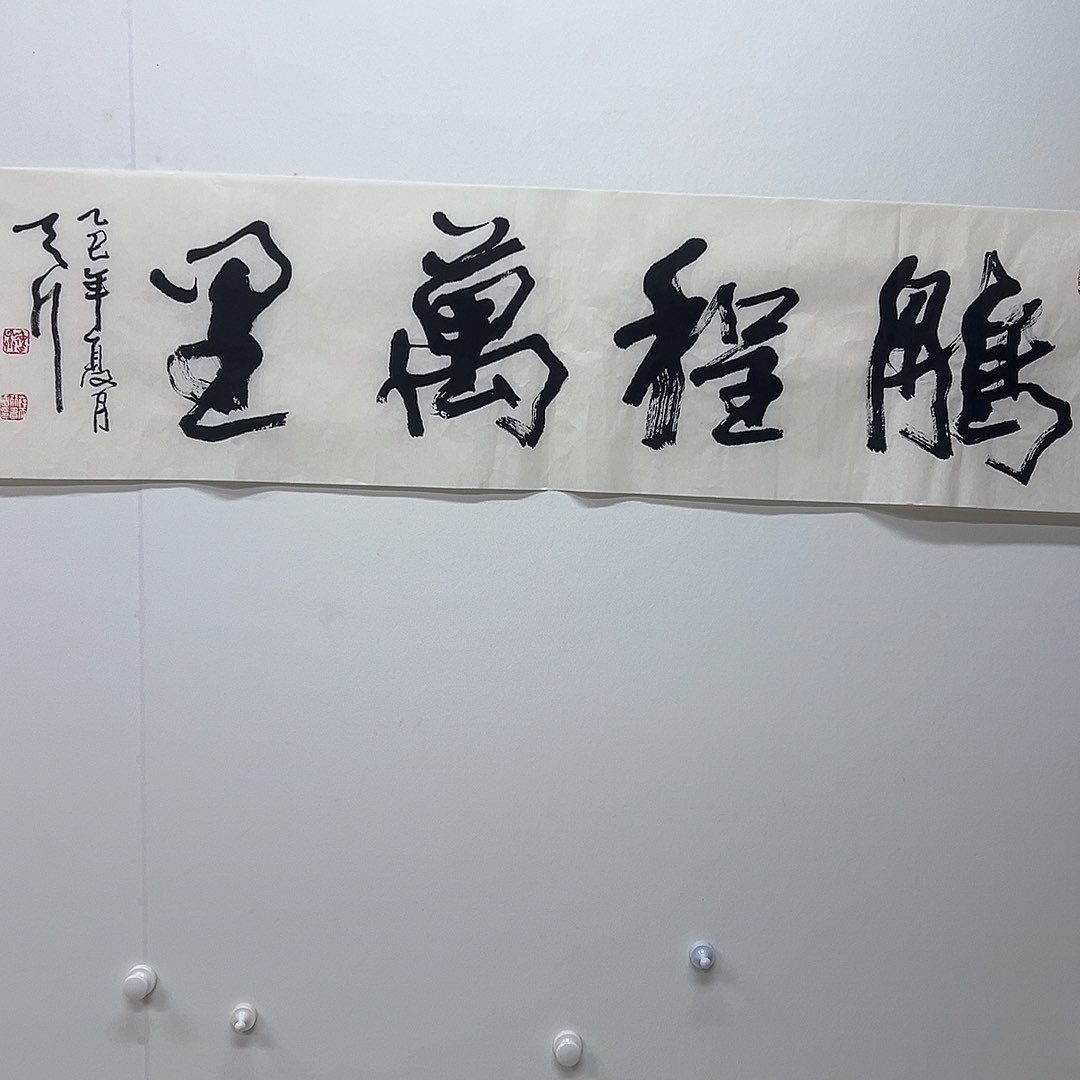 鵬程萬里
乙巳年夏月